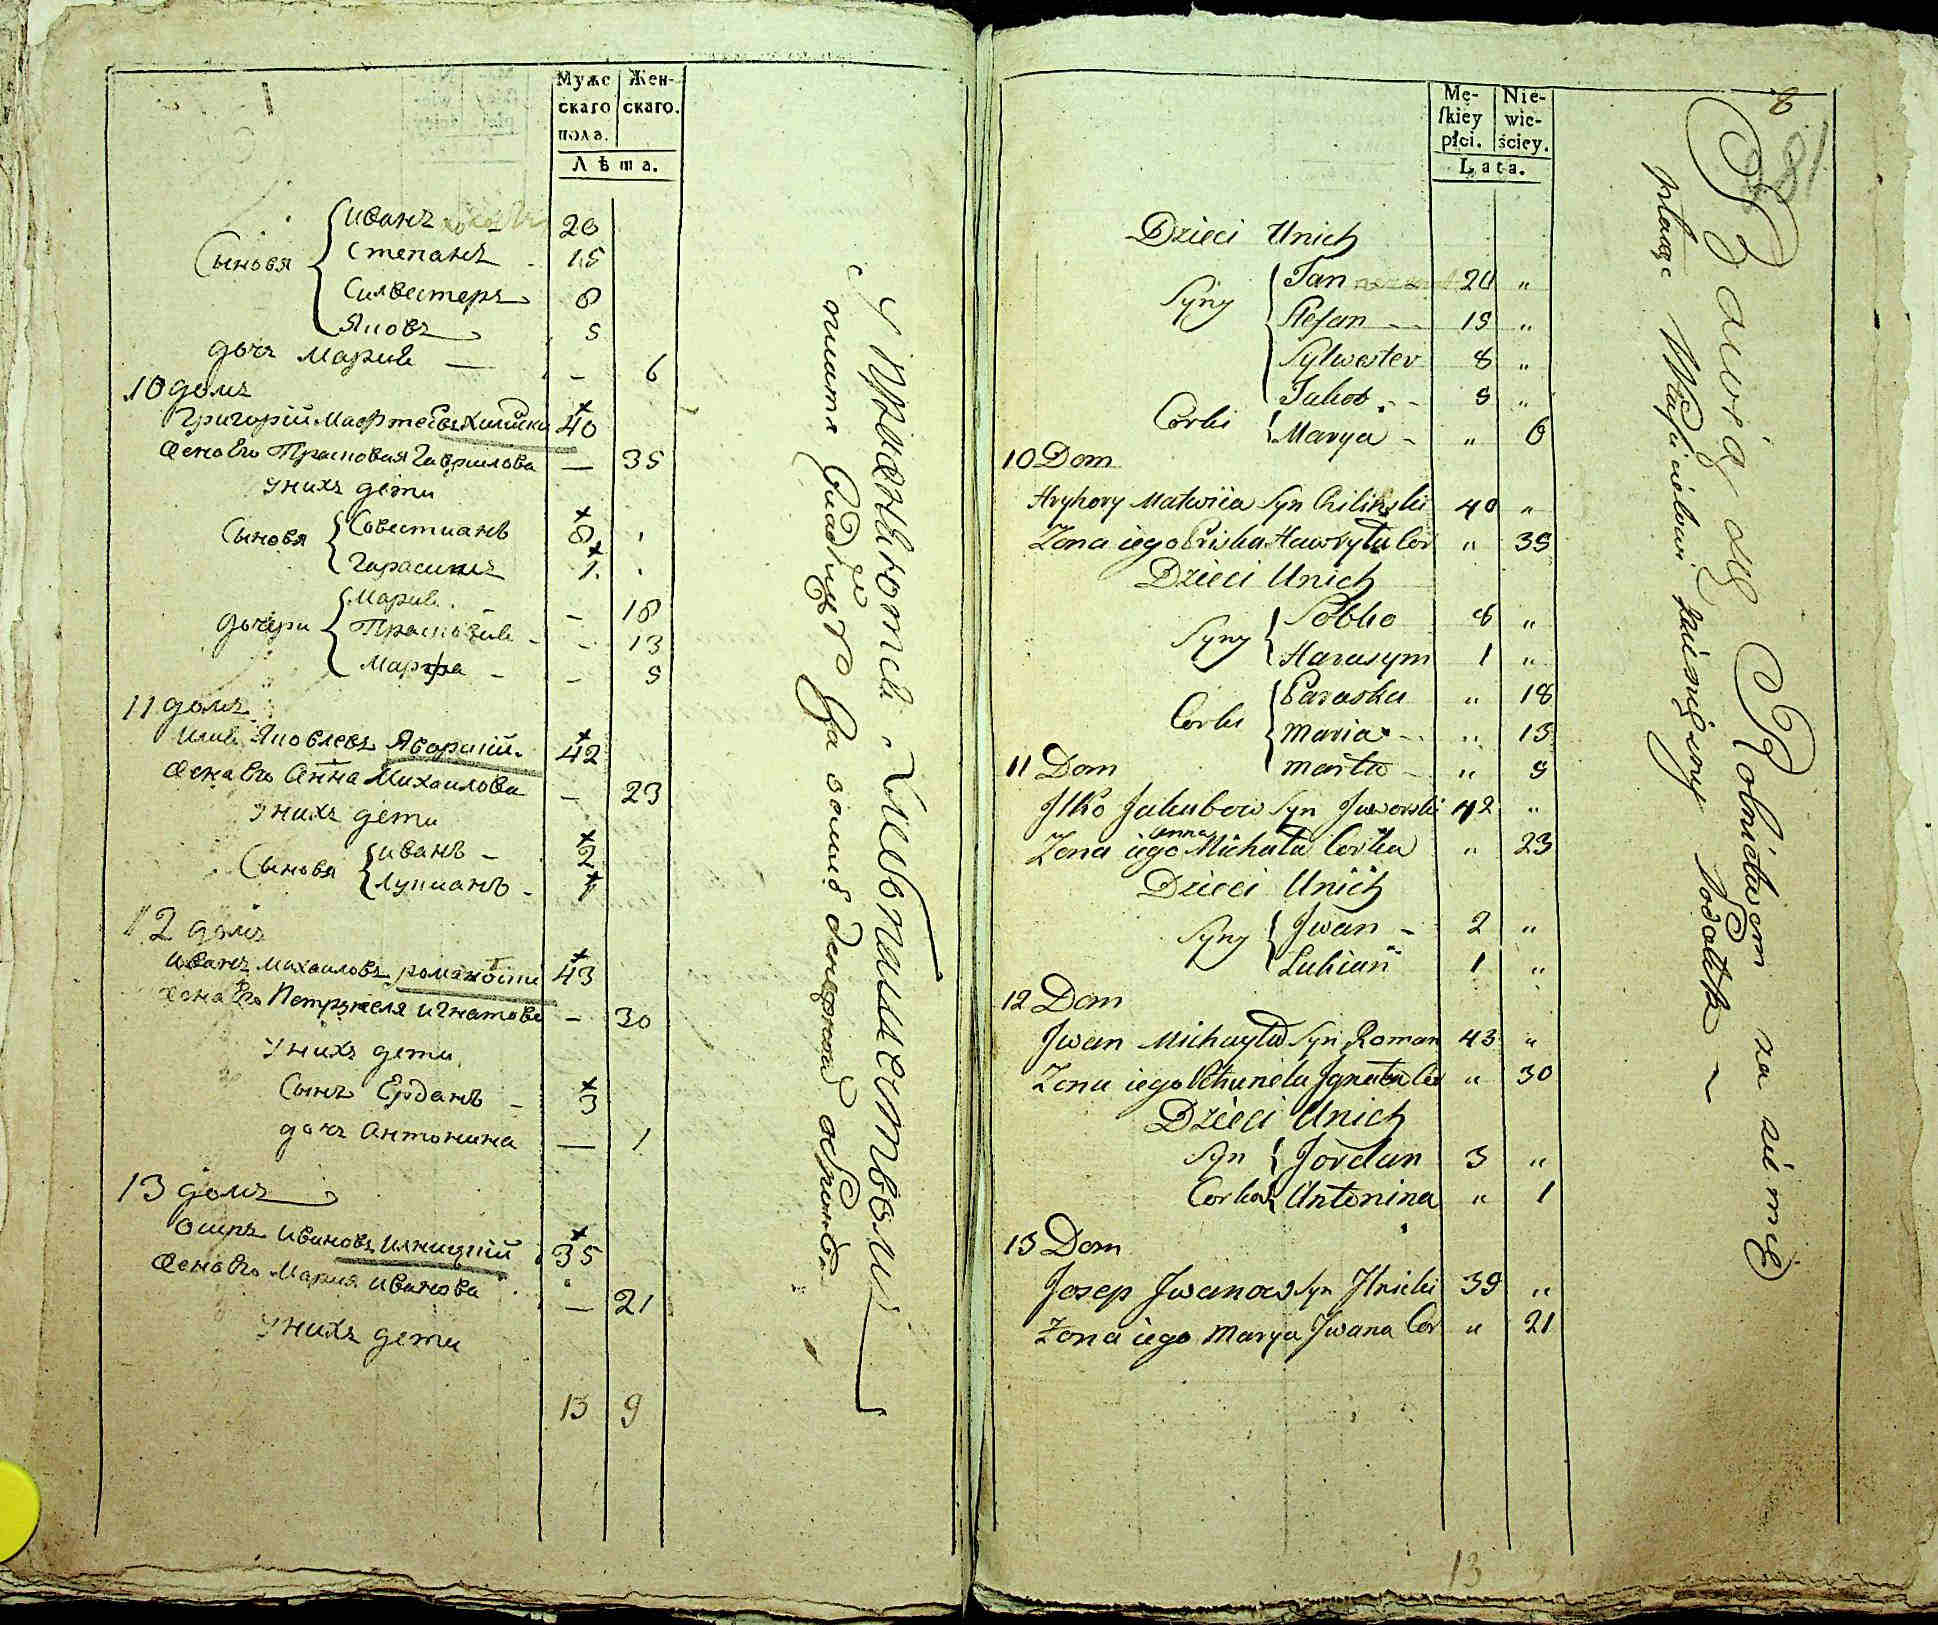 Мужс
скаго
пола.
Жен-
скаго.
Лѣта.
Сыновя
Иванъ 20
Степанъ 15
Силвестеръ 8
Яковъ 5
дочь Мария — 6
10 домъ
Григорій Мафтеевъ Хилински 40
Жена Его Прасковия Гаврилова — 35
Унихъ дети
Сыновя
Совестианъ 8
Гарасимъ 1
дочери
Мария - 18
Прасковия - 13
Марфа - 5
11 домъ
Илия Яковлевъ Яворский 42
Жена Его Анна Михаилова - 23
Унихъ дети
Сыновя
Иванъ - 2
Лукианъ - 1
12 домъ
Иванъ Михаиловъ 43
Жена Его Петрунеля Игнатова - 30
Унихъ дети
Сынъ Ерданъ - 3
дочь Антонина — 1
13 домъ
Осипъ Ивановъ Илницкий 35
Жена Его Мария Иванова — 21
Унихъ дети
13 9
Упражняются Хлебопашеством
платя Владельцу За землю денежной
Mę-
ſkiey
płci.
Nie-
wie-
ściey.
Lata.
8
81
Dzieci Unich
Syny
Jan 20 "
Stefan 15 "
Sylwester 8 "
Jakob 5 "
Corki Marya - " 6
10 Dom
Hryhory Matwiia Syn Chilinski 40 "
Zona iego Priska Hawryła Cor " 35
Dzieci Unich
Syny
Sobko 8 "
Harasym 1 "
Corki
Paraska " 18
Maria - " 13
Marta - " 5
11 Dom
Ilko Jakubow Syn Jaworski 42 "
Zona iego Anna Michała Corka " 23
Dzieci Unich
Syny
Jwan - 2 "
Lukian 1 "
12 Dom
Jwan Michayła Syn Roman 43 "
Zona iego Petrunela Jgnata Cor " 30
Dzieci Unich
Syn Jordan 3 "
Corka Antonina " 1
13 Dom
Josep Jwanow Syn Jlnicki 39 "
Zona iego Marya Jwana Cor " 21
Bawią się Rolnictwem za ziemię
płacąc Włascicielowi pieniężny podatk
13